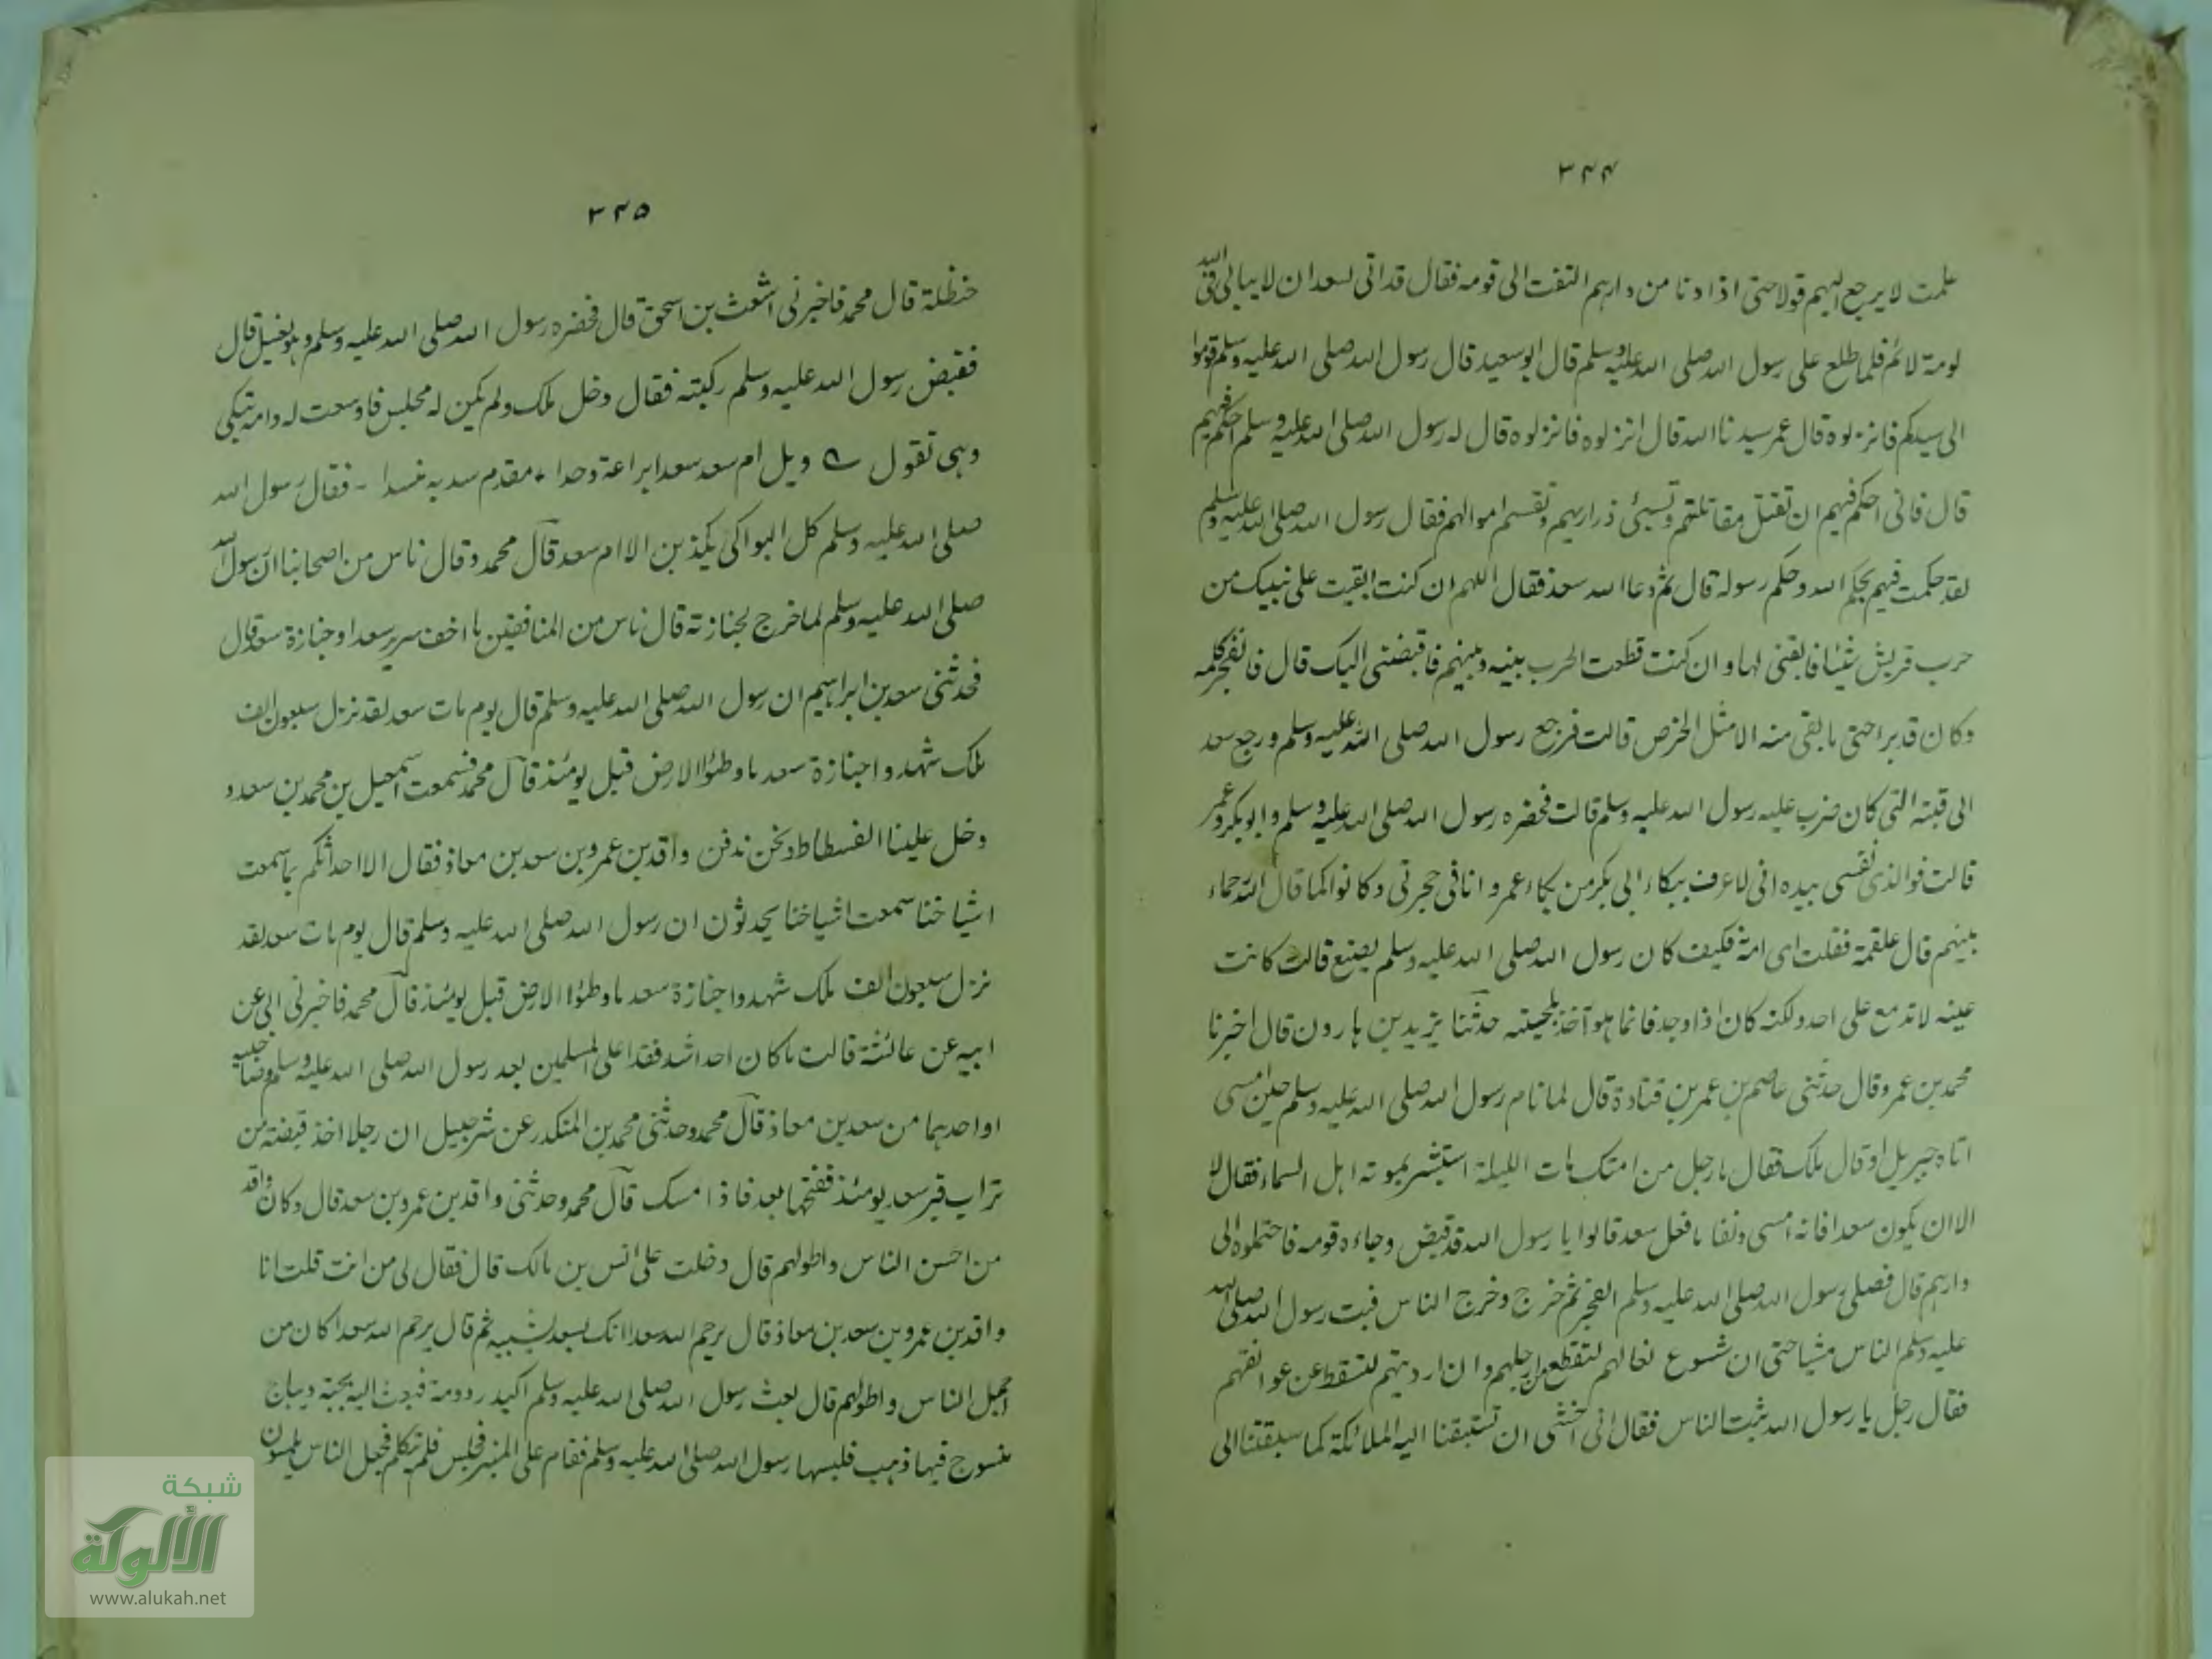 ٣٤٤
علمت لا يرجع اليهم قولا حتى اذا دنا من دارهم التفت الى قومه فقال قد اتى لسعد ان لا يبالى فى الله
لومة لائم فلما طلع على رسول الله صلى الله عليه وسلم قال ابو سعيد قال رسول الله صلى الله عليه وسلم قوموا
الى سيدكم فانزلوه قال عمر سيدنا الله قال انزلوه فانزلوه قال له رسول الله صلى الله عليه وسلم احكم فيهم
قال فانى احكم فيهم ان تقتل مقاتلتهم وتسبى ذراريهم وتقسم اموالهم فقال رسول الله صلى الله عليه وسلم
لقد حكمت فيهم بحكم الله وحكم رسوله قال ثم دعا الله سعد فقال اللهم ان كنت ابقيت على نبيك من
حرب قريش شيئا فابقنى لها وان كنت قطعت الحرب بينه وبينهم فاقبضنى اليك قال فانفجر كلمه
وكان قد برا حتى ما بقى منه الا مثل الخرص قالت فرجع رسول الله صلى الله عليه وسلم ورجع سعد
الى قبته التى كان ضرب عليه رسول الله عليه وسلم قالت فحضره رسول الله صلى الله عليه وسلم وابو بكر وعمر
قالت فو الذى نفسى بيده انى لاعرف ببكاء ابى بكر من بكاء عمر وانا فى حجرتى وكانوا كما قال الله رحماء
بينهم قال علقمة فقلت اى امة فكيف كان رسول الله صلى الله عليه وسلم يصنع قالت كانت
عينه لا تدمع على احد ولكنه كان اذا وجد فانما هو آخذ بلحيته حدثنا يزيد بن هارون قال اخبرنا
محمد بن عمرو قال حدثنى عاصم بن عمر بن قتادة قال لما نام رسول الله صلى الله عليه وسلم حين امسى
اتاه جبريل او قال ملك فقال ما رجل من امتك مات الليلة استبشر بموته اهل السماء فقال لا
الا ان يكون سعدا فانه امسى دنفا ما فعل سعد قالوا يا رسول الله قد قبض وجاءه قومه فاحتملوه الى
دارهم قال فصلى رسول الله صلى الله عليه وسلم الفجر ثم خرج وخرج الناس فبت رسول الله صلى الله
عليه وسلم الناس مشيا حتى ان شسوع نعالهم لتقطع من ارجلهم وان ارديتهم لتسقط عن عواتقهم
فقال رجل يا رسول الله بتت الناس فقال انى اخشى ان تسبقنا اليه الملائكة كما سبقتنا الى
٣٤٥
حنظلة قال محمد فاخبرنى اشعث بن اسحق قال فحضره رسول الله صلى الله عليه وسلم وهو يغسل قال
فقبض رسول الله عليه وسلم ركبته فقال دخل ملك ولم يكن له مجلس فاوسعت له وامه تبكى
وهى تقول ويل ام سعد سعدا براعة وحدا ، مقدم سد به مسدا - فقال رسول الله
صلى الله عليه وسلم كل البواكى يكذبن الا ام سعد قال محمد وقال ناس من اصحابنا ان رسول الله
صلى الله عليه وسلم لما خرج لجنازته قال ناس من المنافقين ما اخف سرير سعد او جنازة سعد قال
فحدثنى سعد بن ابراهيم ان رسول الله صلى الله عليه وسلم قال يوم مات سعد لقد نزل سبعون الف
ملك شهدوا جنازة سعد ما وطئوا الارض قبل يومئذ قال محمد فسمعت اسمعيل بن محمد بن سعد و
دخل علينا الفسطاط ونحن ندفن واقد بن عمرو بن سعد بن معاذ فقال الا احدثكم بما سمعت
اشياخنا سمعت اشياخنا يحدثون ان رسول الله صلى الله عليه وسلم قال يوم مات سعد لقد
نزل سبعون الف ملك شهدوا جنازة سعد ما وطئوا الارض قبل يومئذ قال محمد فاخبرنى ابى عن
ابيه عن عائشة قالت ما كان احد اشد فقدا على المسلمين بعد رسول الله صلى الله عليه وسلم وصاحبيه
او احدهما من سعد بن معاذ قال محمد وحدثنى محمد بن المنكدر عن شرحبيل ان رجلا اخذ قبضة من
تراب قبر سعد يومئذ ففتحها بعد فاذا مسك قال محمد وحدثنى واقد بن عمرو بن سعد قال وكان واقد
من احسن الناس واطولهم قال دخلت على انس بن مالك قال فقال لى من انت قلت انا
واقد بن عمرو بن سعد بن معاذ قال يرحم الله سعدا انك بسعد لشبيه ثم قال يرحم الله سعدا كان من
اجمل الناس واطولهم قال بعث رسول الله صلى الله عليه وسلم اكيدر دومة فبعث اليه بجبة ديباج
منسوج فيها ذهب فلبسها رسول الله صلى الله عليه وسلم فقام على المنبر فجلس فلم يتكلم فجعل الناس يلمسون
شبكة
الألوكة
www.alukah.net